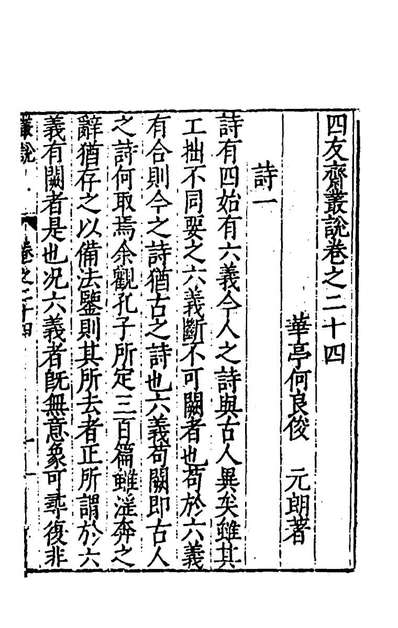 四友齋叢說卷之二十四
華亭何良俊 元朗著
詩一
詩有四始有六義今人之詩與古人異矣雖其
工拙不同要之六義斷不可闕者也苟於六義
有合則今之詩猶古之詩也六義苟闕即古人
之詩何取焉余觀孔子所定三百篇雖淫奔之
辭猶存之以備法鑒則其所去者正所謂於六
義有闕者是也况六義者既無意象可尋復非
叢說 卷之二十四